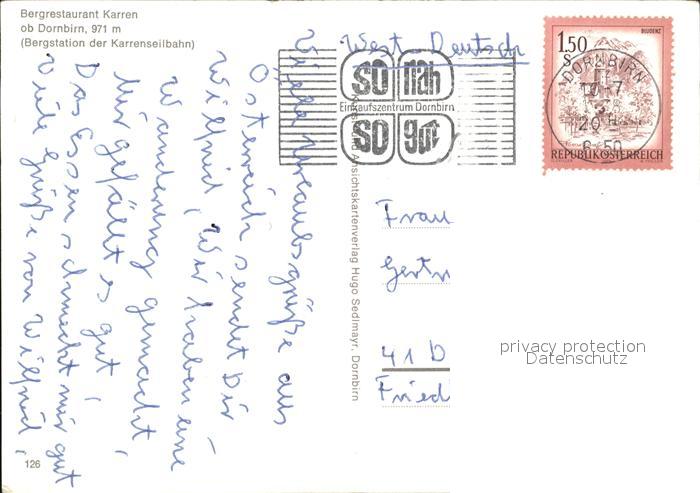 Bergrestaurant Karren
ob Dornbirn, 971 m
(Bergstation der Karrenseilbahn)
Viele Urlaubsgrüße aus
Österreich sendet Dir
Wilfrid, Wir haben eine
Wanderung gemacht,
Mir gefällt es gut,
Das Essen schmeckt mir gut
Viele Grüße von Wilfrid,
126
West-Deutsch
so nah
Einkaufszentrum Dornbirn
so gut
BLUDENZ
1.50
S
DORNBIRN
20
6 50
REPUBLIK ÖSTERREICH
Kunst- und Ansichtskartenverlag Hugo Sedlmayr, Dornbirn
Frau
Gertr
41 D
Fried
privacy protection
Datenschutz